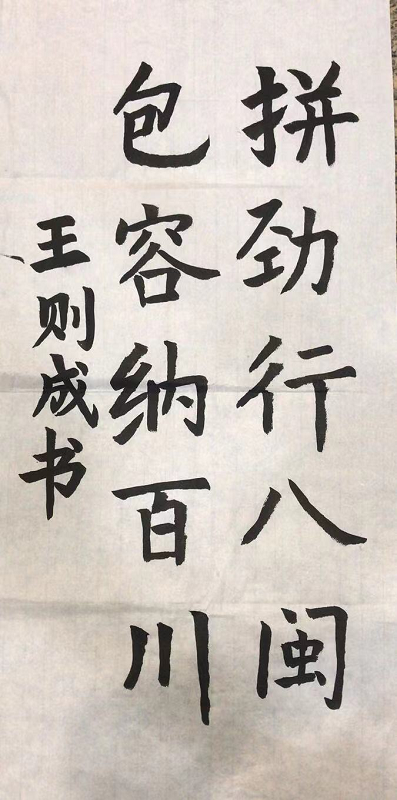 拼劲行八闽
包容纳百川
王则成书